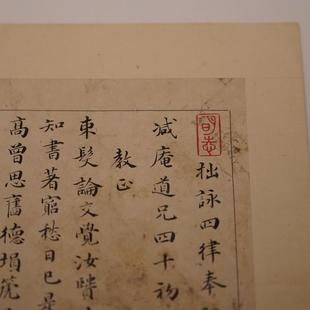 拙詠四律奉
減庵道兄四十初
教正
束髮論文覺汝賢
知書著窮愁日已
高曾思舊德塤箎